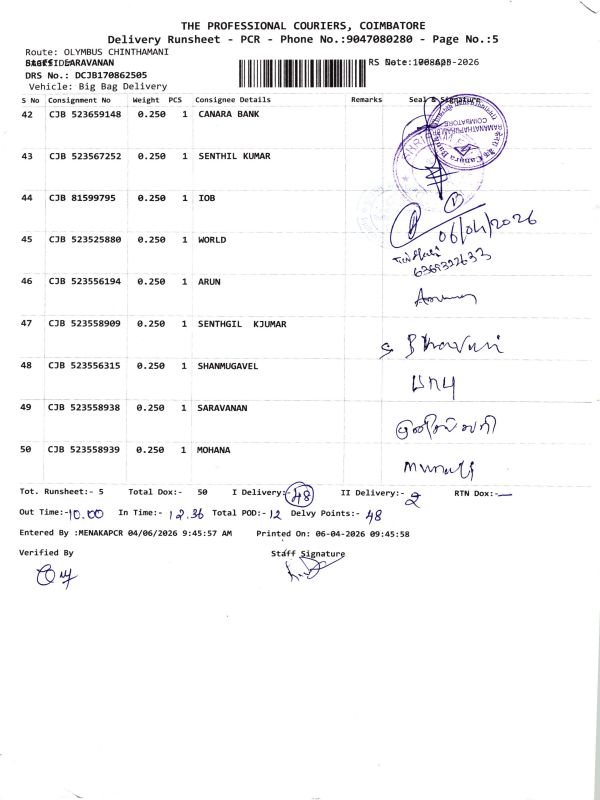 THE PROFESSIONAL COURIERS, COIMBATORE
Delivery Runsheet - PCR - Phone No.:9047080280 - Page No.:5
Route: OLYMBUS CHINTHAMANI
SARAVANAN
DRS No.: DCJB170862505
Vehicle: Big Bag Delivery
S No Consignment No Weight PCS Consignee Details Remarks Seal & Signature
42 CJB 523659148 0.250 1 CANARA BANK
43 CJB 523567252 0.250 1 SENTHIL KUMAR
44 CJB 81599795 0.250 1 IOB
06/04/2026
45 CJB 523525880 0.250 1 WORLD
6369322633
46 CJB 523556194 0.250 1 ARUN
47 CJB 523558909 0.250 1 SENTHGIL KJUMAR
48 CJB 523556315 0.250 1 SHANMUGAVEL
49 CJB 523558938 0.250 1 SARAVANAN
50 CJB 523558939 0.250 1 MOHANA
Tot. Runsheet:- 5 Total Dox:- 50 I Delivery:- 48 II Delivery:- 2 RTN Dox:- —
Out Time:- 10.00 In Time:- 12.36 Total POD:- 12 Delvy Points:- 48
Entered By :MENAKAPCR 04/06/2026 9:45:57 AM Printed On: 06-04-2026 09:45:58
Verified By Staff Signature